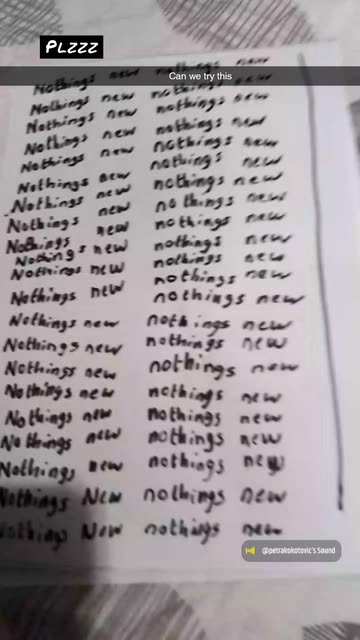 Plzzz
Can we try this
Nothings new nothings new
Nothings new nothings new
Nothings new nothings new
Nothings new nothings new
Nothings new nothings new
Nothings new nothings new
Nothings new nothings new
Nothings new nothings new
Nothings new nothings new
Nothings new nothings new
Nothings new nothings new
nothings new
Nothings new nothings new
Nothings new nothings new
Nothings new nothings new
Nothings new nothings new
Nothings new nothings new
Nothings new nothings new
Nothings new nothings new
Nothings new nothings new
Nothings New nothings new
Nothings New nothings new
@petrakokotovic's Sound